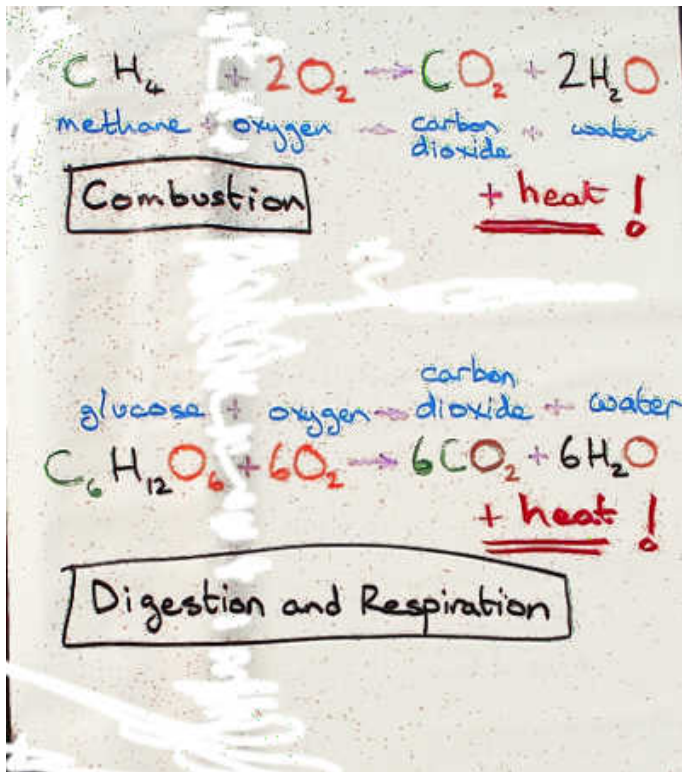 CH₄ + 2O₂ → CO₂ + 2H₂O
methane + oxygen → carbon dioxide + water
Combustion
+ heat !
glucose + oxygen → carbon dioxide + water
C₆H₁₂O₆ + 6O₂ → 6CO₂ + 6H₂O
+ heat !
Digestion and Respiration